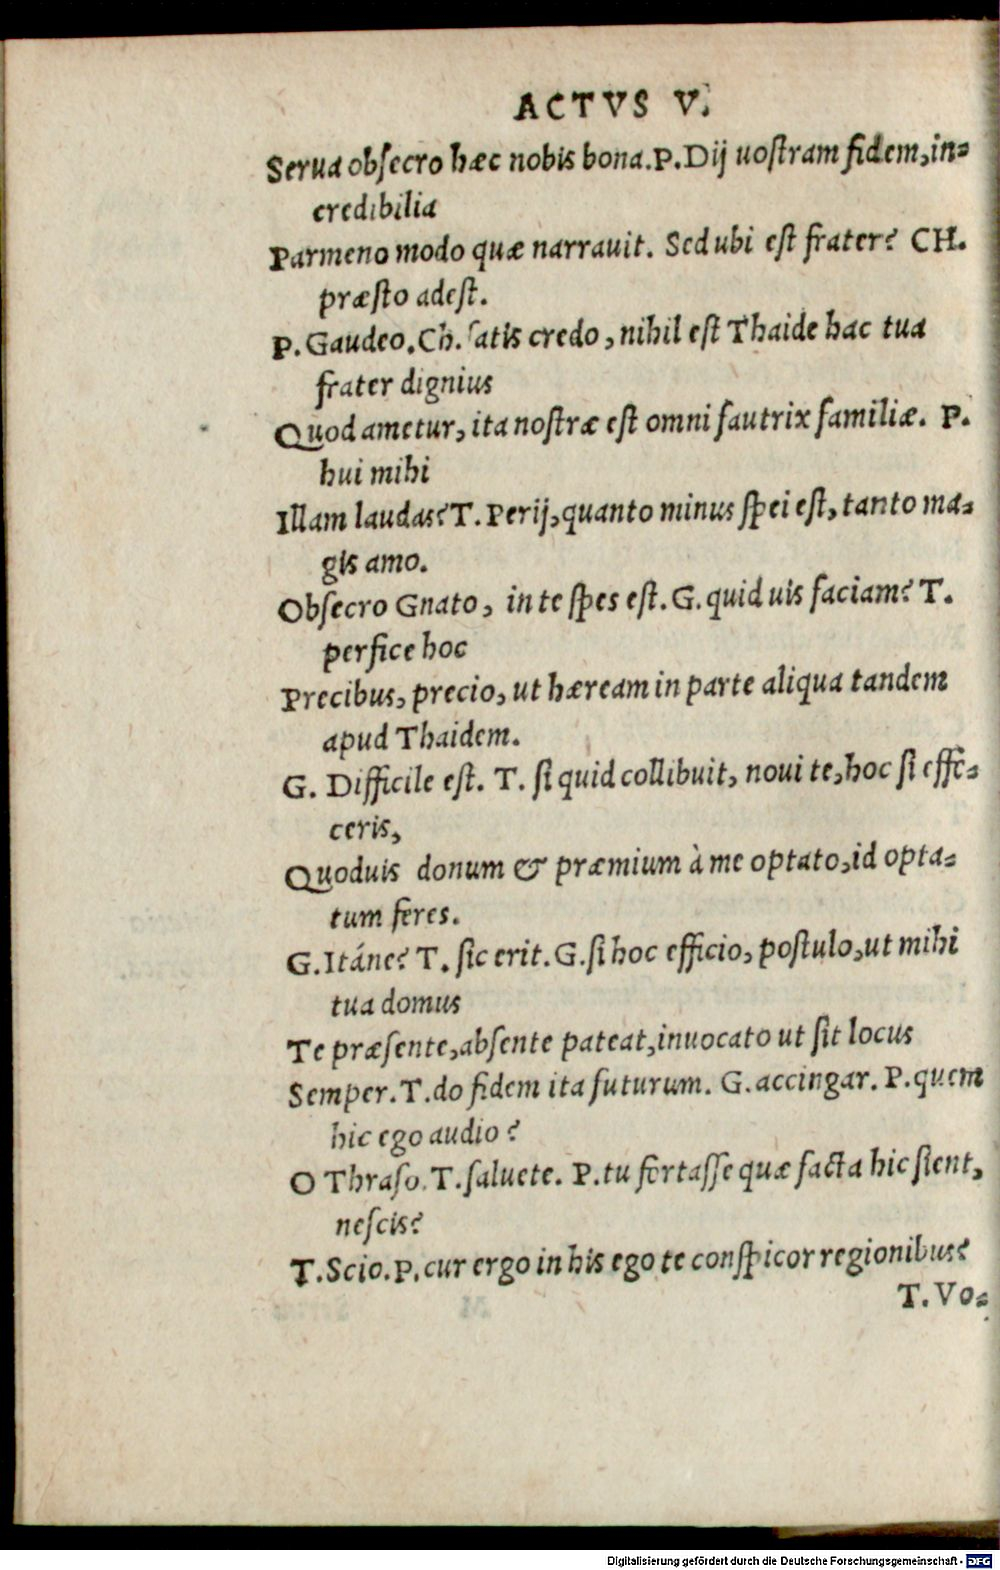 ACTVS V.
Serua obsecro hæc nobis bona. P. Dij uostram fidem, in-
credibilia
Parmeno modo quæ narrauit. Sed ubi est frater? CH.
præsto adest.
P. Gaudeo. Ch. satis credo, nihil est Thaide hac tua
frater dignius
Quod ametur, ita nostræ est omni fautrix familiæ. P.
hui mihi
Illam laudas? T. Perij, quanto minus spei est, tanto ma-
gis amo.
Obsecro Gnato, in te spes est. G. quid uis faciam? T.
perfice hoc
Precibus, precio, ut hæream in parte aliqua tandem
apud Thaidem.
G. Difficile est. T. si quid collibuit, noui te, hoc si effe-
ceris,
Quoduis donum & præmium à me optato, id opta-
tum feres.
G. Itáne? T. sic erit. G. si hoc efficio, postulo, ut mihi
tua domus
Te præsente, absente pateat, inuocato ut sit locus
Semper. T. do fidem ita futurum. G. accingar. P. quem
hic ego audio?
O Thraso. T. saluete. P. tu fortasse quæ facta hic sient,
nescis?
T. Scio. P. cur ergo in his ego te conspicor regionibus?
T. Vo-
Digitalisierung gefördert durch die Deutsche Forschungsgemeinschaft - DFG